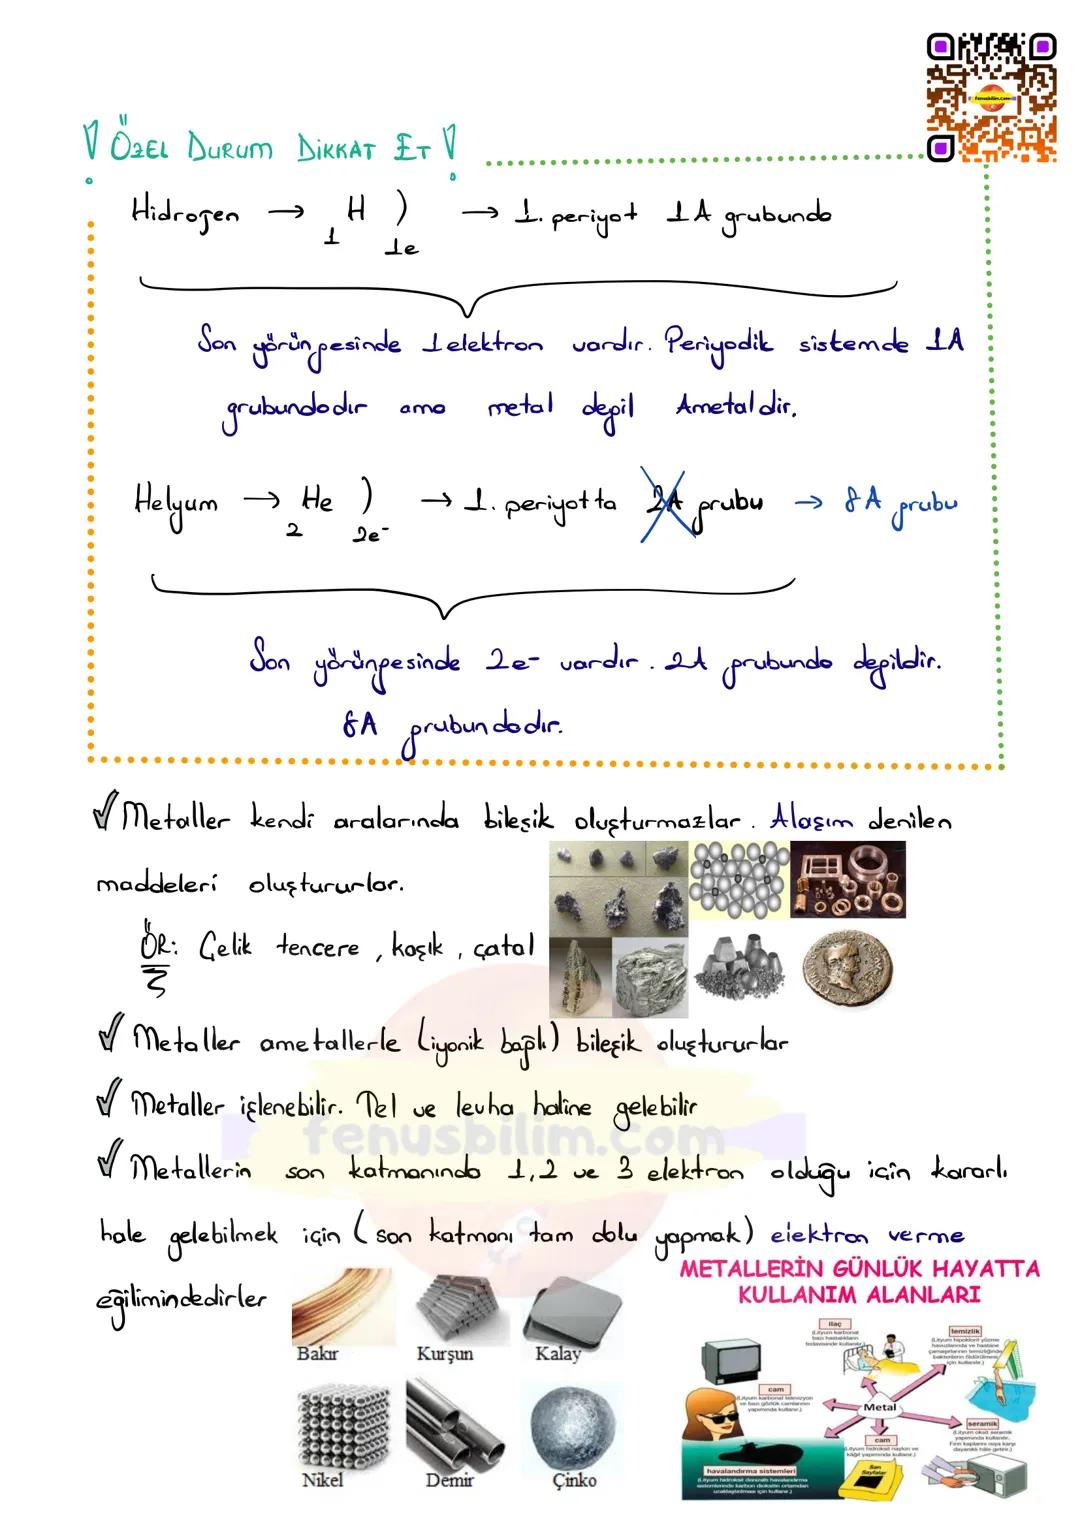 ÖZEL DURUM DİKKAT ET
Hidrojen → ₁H ) 1e → 1. periyot 1A grubunda
Son yörüngesinde 1 elektron vardır. Periyodik sistemde 1A
grubundadır ama metal değil Ametaldir.
Helyum → ₂He ) 2e⁻ → 1. periyotta 2A grubu → 8A grubu
Son yörüngesinde 2e⁻ vardır. 2A grubunda değildir.
8A grubundadır.
Metaller kendi aralarında bileşik oluşturmazlar. Alaşım denilen
maddeleri oluştururlar.
ÖR: Çelik tencere, kaşık, çatal
Metaller ametallerle (iyonik bağlı) bileşik oluştururlar
Metaller işlenebilir. Tel ve levha haline gelebilir
fenusbilim.com
Metallerin son katmanında 1, 2 ve 3 elektron olduğu için kararlı
hale gelebilmek için (son katmanı tam dolu yapmak) elektron verme
eğilimindedirler
METALLERİN GÜNLÜK HAYATTA
KULLANIM ALANLARI
Bakır Kurşun Kalay
Nikel Demir Çinko
ilaç
(Lityum karbonat
bazı hastalıkların
tedavisinde kullanılır.)
temizlik
(Lityum hipoklorit yüzme
havuzlarında ve hastane
çamaşırlarının temizliğinde
bakterilerin öldürülmesi
için kullanılır.)
cam
(Lityum karbonat televizyon
ve bazı gözlük camlarının
yapımında kullanılır.)
Metal
seramik
(Lityum oksit seramik
yapımında kullanılır.
Fırın kaplarını ısıya karşı
dayanıklı hâle getirir.)
cam
(Lityum hidroksit naylon ve
kâğıt yapımında kullanılır.)
Sarı
Sayfalar
havalandırma sistemleri
(Lityum hidroksit denizaltı havalandırma
sistemlerinde karbon dioksitin ortamdan
uzaklaştırılması için kullanılır.)